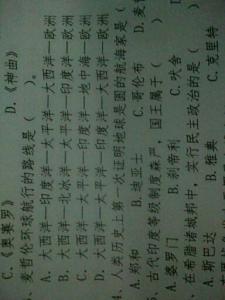 C.《奥赛罗》 D.《神曲》
、麦哲伦环球航行的路线是（ ）。
A. 大西洋—印度洋—太平洋—大西洋—欧洲
B. 大西洋—北冰洋—太平洋—印度洋—欧洲
C. 大西洋—太平洋—印度洋—地中海—欧洲
D. 大西洋—太平洋—印度洋—大西洋—欧洲
、人类历史上第一次证明地球是圆的航海家是（
A. 郑和 B. 迪亚士 C. 哥伦布 D. 麦
、古代印度等级制度森严，国王属于（
A. 婆罗门 B. 刹帝利 C. 吠舍
、在希腊诸城邦中，实行民主政治的是（
A. 斯巴达 B. 雅典 C. 克里特